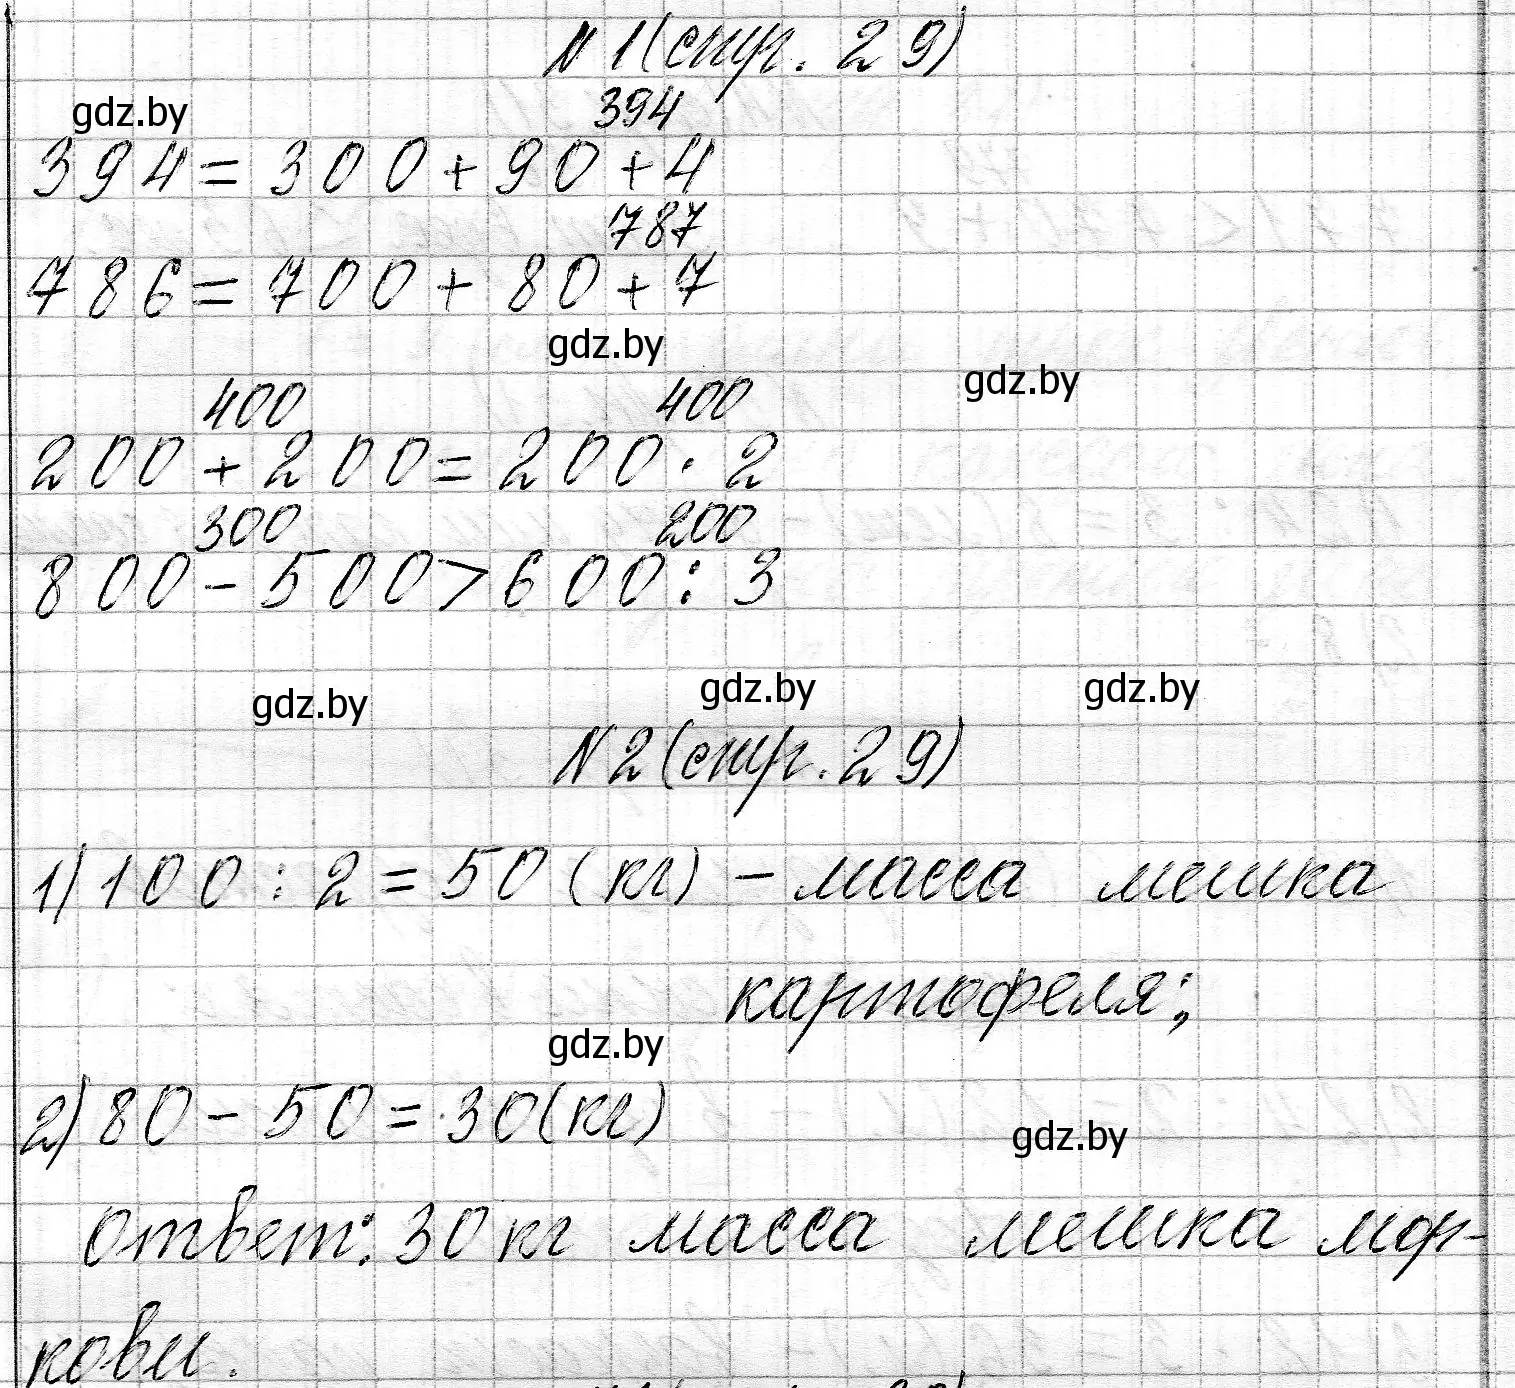 №1(стр. 29)
gdz.by
394
394 = 300 + 90 + 4
787
786 = 700 + 80 + 7
gdz.by
gdz.by
400 400
200 + 200 = 200 · 2
300 200
800 - 500 > 600 : 3
gdz.by gdz.by gdz.by
№2(стр. 29)
1) 100 : 2 = 50 (кг) - масса мешка
картофеля;
gdz.by
2) 80 - 50 = 30(кг)
gdz.by
Ответ: 30 кг масса мешка мор-
кови.